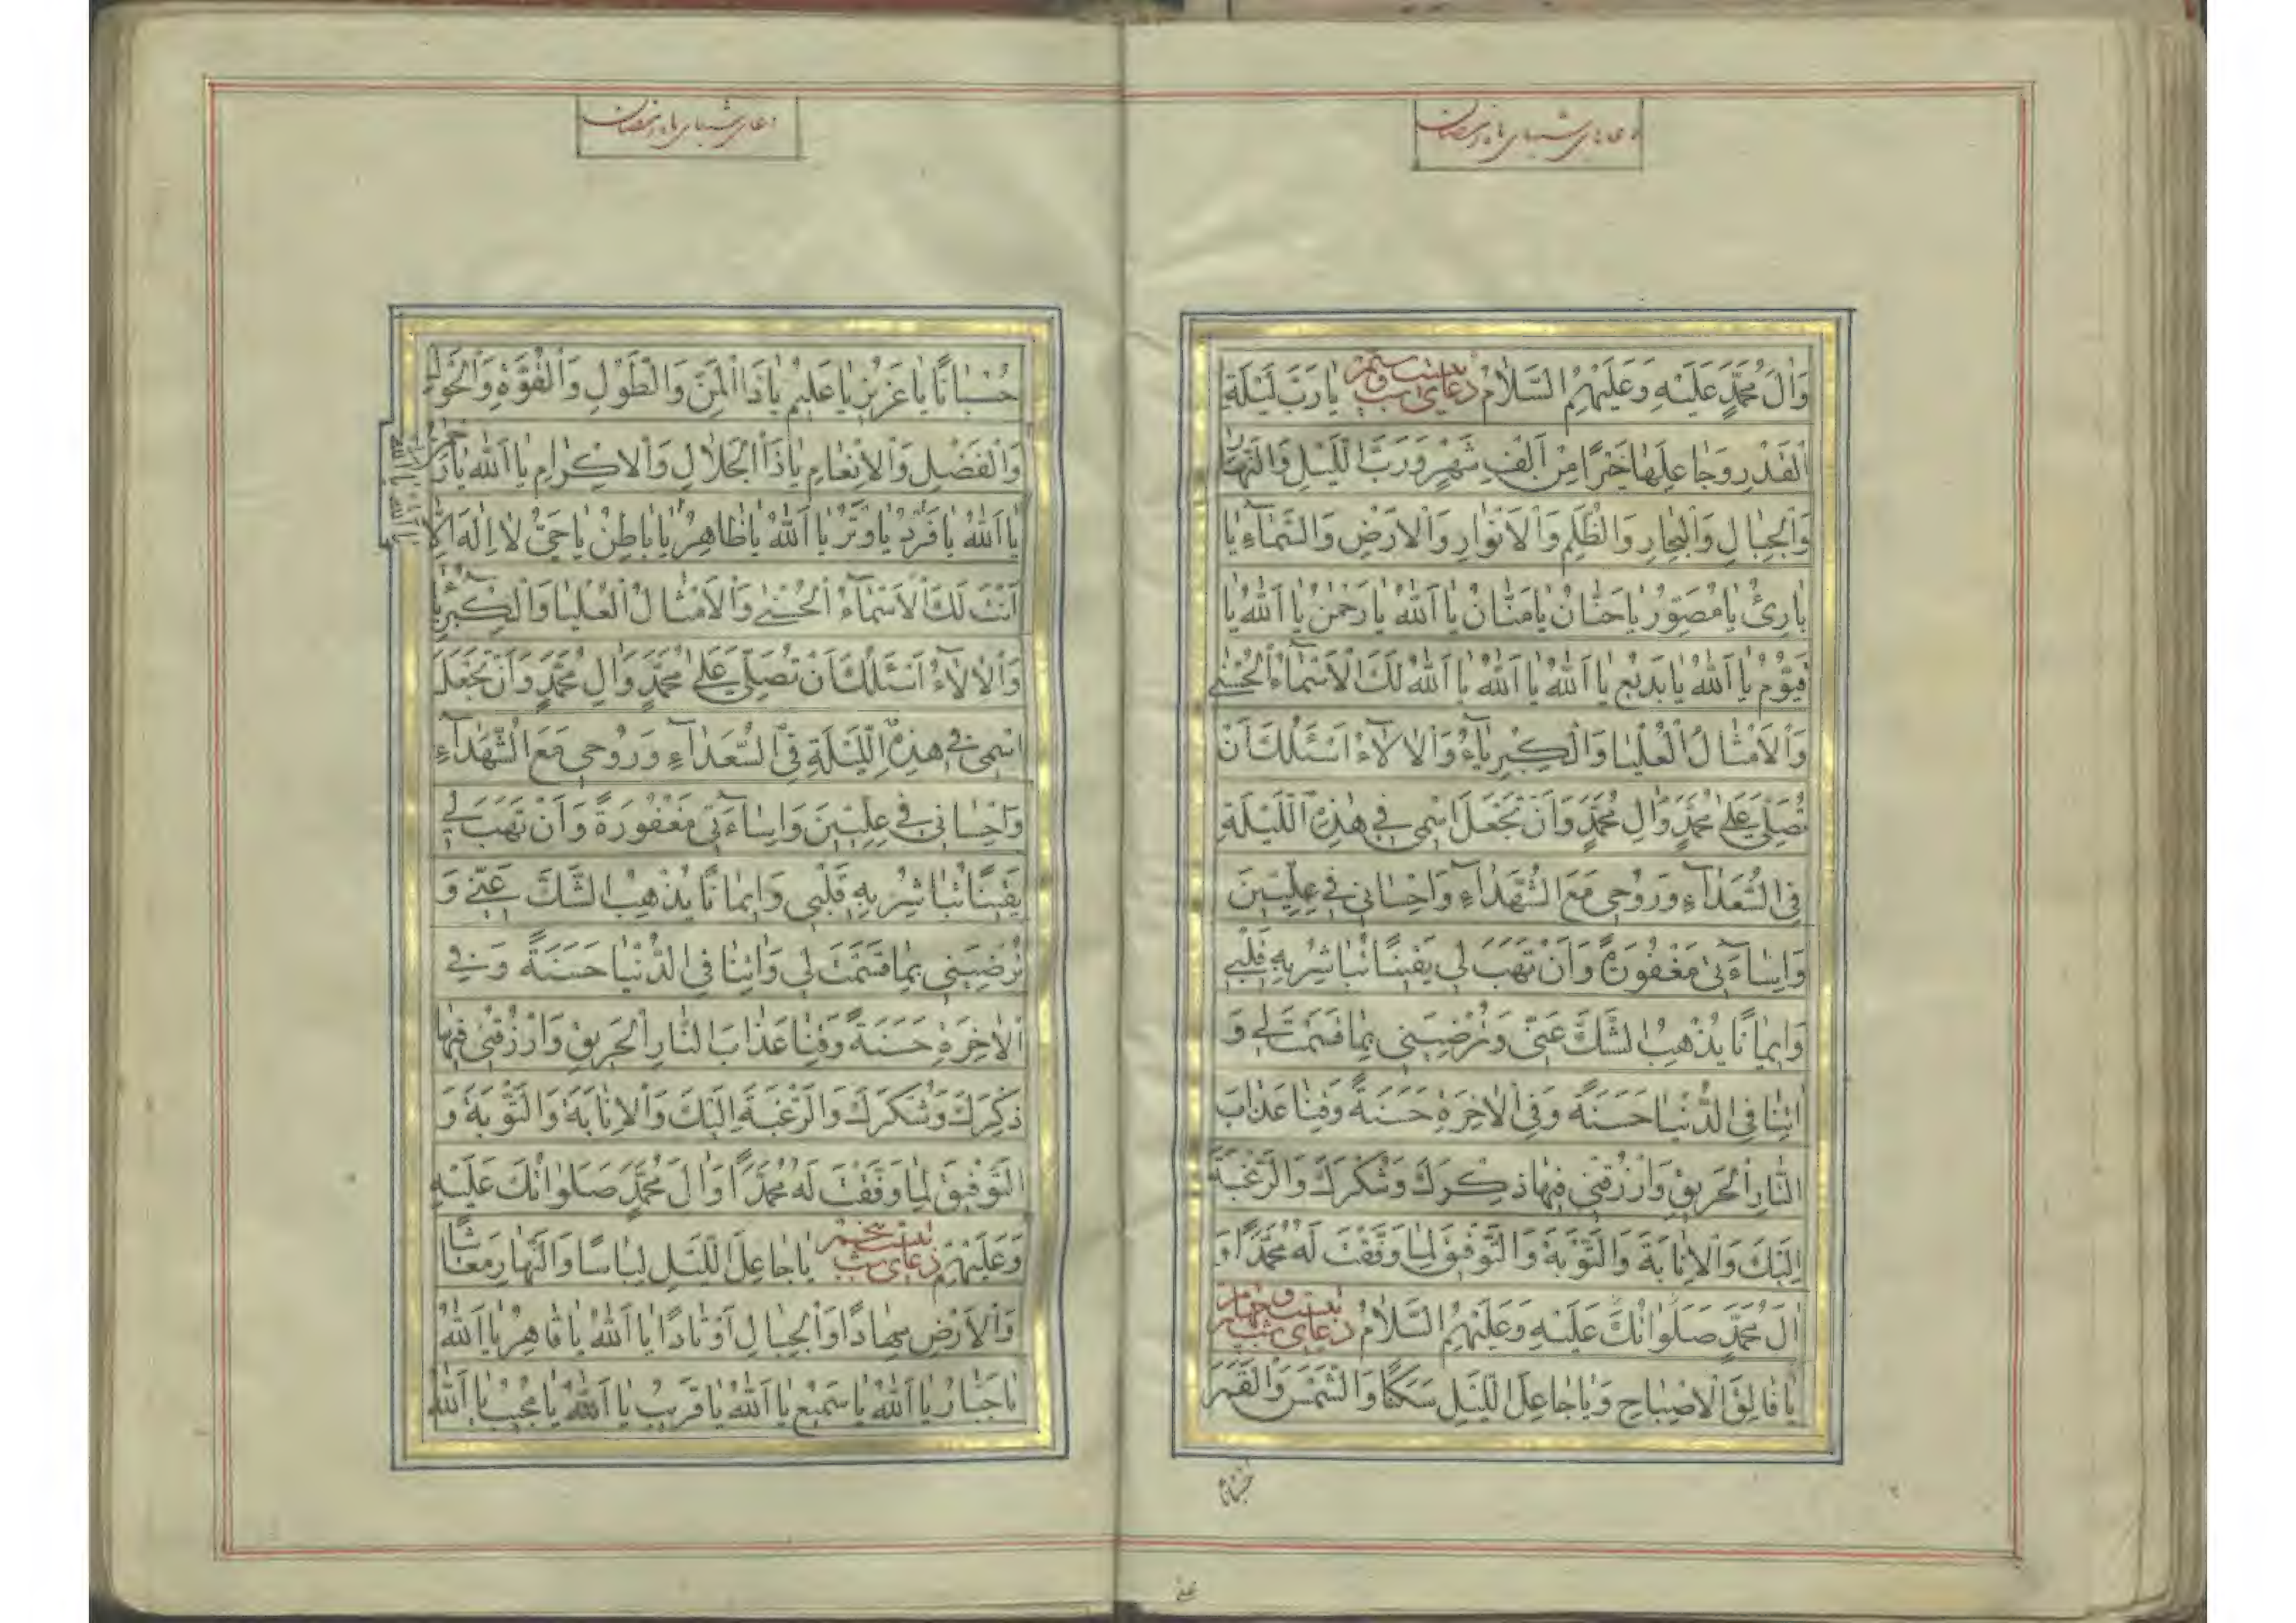 دعاهای شبهای ماه رمضان
وَالَ مُحَمَّدٍ عَلَيْهِ وَعَلَيْهِمُ السَّلامُ دعای شب بیست وسیم يا رَبَّ لَيْلَةِ
الْقَدْرِ وَجاعِلَها خَيْرًا مِنْ اَلْفِ شَهْرٍ وَرَبَّ اللَّيْلِ وَالنَّهارِ
وَالْجِبالِ وَالْبِحارِ وَالظُّلَمِ وَالْاَنْوارِ وَالْاَرْضِ وَالسَّمآءِ يا
بارِئُ يا مُصَوِّرُ يا حَنّانُ يا مَنّانُ يا اَللهُ يا رَحْمنُ يا اَللهُ يا
قَيُّومُ يا اَللهُ يا بَديعُ يا اَللهُ يا اَللهُ يا اَللهُ لَكَ الْاَسْماءُ الْحُسْنى
وَالْاَمْثالُ الْعُلْيا وَالْكِبْرِيآءُ وَالْالآءُ اَسْئَلُكَ اَنْ
تُصَلِّىَ عَلى مُحَمَّدٍ وَالِ مُحَمَّدٍ وَاَنْ تَجْعَلَ اسْمى فى هذِهِ اللَّيْلَةِ
فِى السُّعَدآءِ وَرُوحى مَعَ الشُّهَدآءِ وَاِحْسانى فى عِلِّيّينَ
وَاِسآءَتى مَغْفُورَةً وَاَنْ تَهَبَ لى يَقينًا تُباشِرُ بِهِ قَلْبى
وَايمانًا يُذْهِبُ الشَّكَّ عَنّى وَتُرْضِيَنى بِما قَسَمْتَ لى وَ
اتِنا فِى الدُّنْيا حَسَنَةً وَفِى الْاخِرَةِ حَسَنَةً وَقِنا عَذابَ
النّارِ الْحَريقِ وَارْزُقْنى فيها ذِكْرَكَ وَشُكْرَكَ وَالرَّغْبَةَ
اِلَيْكَ وَالْاِنابَةَ وَالتَّوْبَةَ وَالتَّوْفيقَ لِما وَفَّقْتَ لَهُ مُحَمَّدًا وَ
الَ مُحَمَّدٍ صَلَواتُكَ عَلَيْهِ وَعَلَيْهِمُ السَّلامُ دعای شب بیست وچهارم
يا فالِقَ الْاِصْباحِ وَيا جاعِلَ اللَّيْلِ سَكَنًا وَالشَّمْسَ وَالْقَمَرَ
حُسْبانًا
دعای شبهای ماه رمضان
حُسْبانًا يا عَزيزُ يا عَليمُ يا ذَا الْمَنِّ وَالطَّوْلِ وَالْقُوَّةِ وَالْحَوْلِ
وَالْفَضْلِ وَالْاِنْعامِ يا ذَا الْجَلالِ وَالْاِكْرامِ يا اَللهُ يا رَحْمنُ
يا اَللهُ يا فَرْدُ يا وَتْرُ يا اَللهُ يا ظاهِرُ يا باطِنُ يا حَىُّ لا اِلهَ اِلّا
اَنْتَ لَكَ الْاَسْمآءُ الْحُسْنى وَالْاَمْثالُ الْعُلْيا وَالْكِبْرِيآءُ
وَالْالآءُ اَسْئَلُكَ اَنْ تُصَلِّىَ عَلى مُحَمَّدٍ وَالِ مُحَمَّدٍ وَاَنْ تَجْعَلَ
اسْمى فى هذِهِ اللَّيْلَةِ فِى السُّعَدآءِ وَرُوحى مَعَ الشُّهَدآءِ
وَاِحْسانى فى عِلِّيّينَ وَاِسآءَتى مَغْفُورَةً وَاَنْ تَهَبَ لى
يَقينًا تُباشِرُ بِهِ قَلْبى وَايمانًا يُذْهِبُ الشَّكَّ عَنّى وَ
تُرْضِيَنى بِما قَسَمْتَ لى وَاتِنا فِى الدُّنْيا حَسَنَةً وَفِى
الْاخِرَةِ حَسَنَةً وَقِنا عَذابَ النّارِ الْحَريقِ وَارْزُقْنى فيها
ذِكْرَكَ وَشُكْرَكَ وَالرَّغْبَةَ اِلَيْكَ وَالْاِنابَةَ وَالتَّوْبَةَ وَ
التَّوْفيقَ لِما وَفَّقْتَ لَهُ مُحَمَّدًا وَالَ مُحَمَّدٍ صَلَواتُكَ عَلَيْهِ
وَعَلَيْهِمْ دعای شب بیست پنجم يا جاعِلَ اللَّيْلِ لِباسًا وَالنَّهارِ مَعاشًا
وَالْاَرْضِ مِهادًا وَالْجِبالِ اَوْتادًا يا اَللهُ يا قاهِرُ يا اَللهُ
يا جَبّارُ يا اَللهُ يا سَميعُ يا اَللهُ يا قَريبُ يا اَللهُ يا مُجيبُ يا اَللهُ